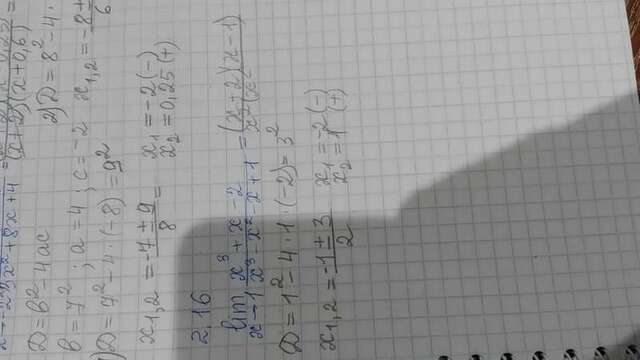 x→-2 3x² + 8x + 4 = (x+2)(x+0,6) =
D = b² - 4ac 2) D = 8² - 4 ·
b = 7² ; a = 4 ; c = -2 x₁,₂ = -8±/6
1) D = 7² - 4 · (-8) = 9²
x₁,₂ = -7 ± 9/8 = x₁ = -2 (-)
x₂ = 0,25 (+)
2.16
lim x→1 x³ + x - 2/x³ - x² - x + 1 = (x+2)(x-1)/x²(x-
D = 1² - 4 · 1 · (-2) = 3²
x₁,₂ = -1 ± 3/2 x₁ = -2 (-)
x₂ = 1 (+)